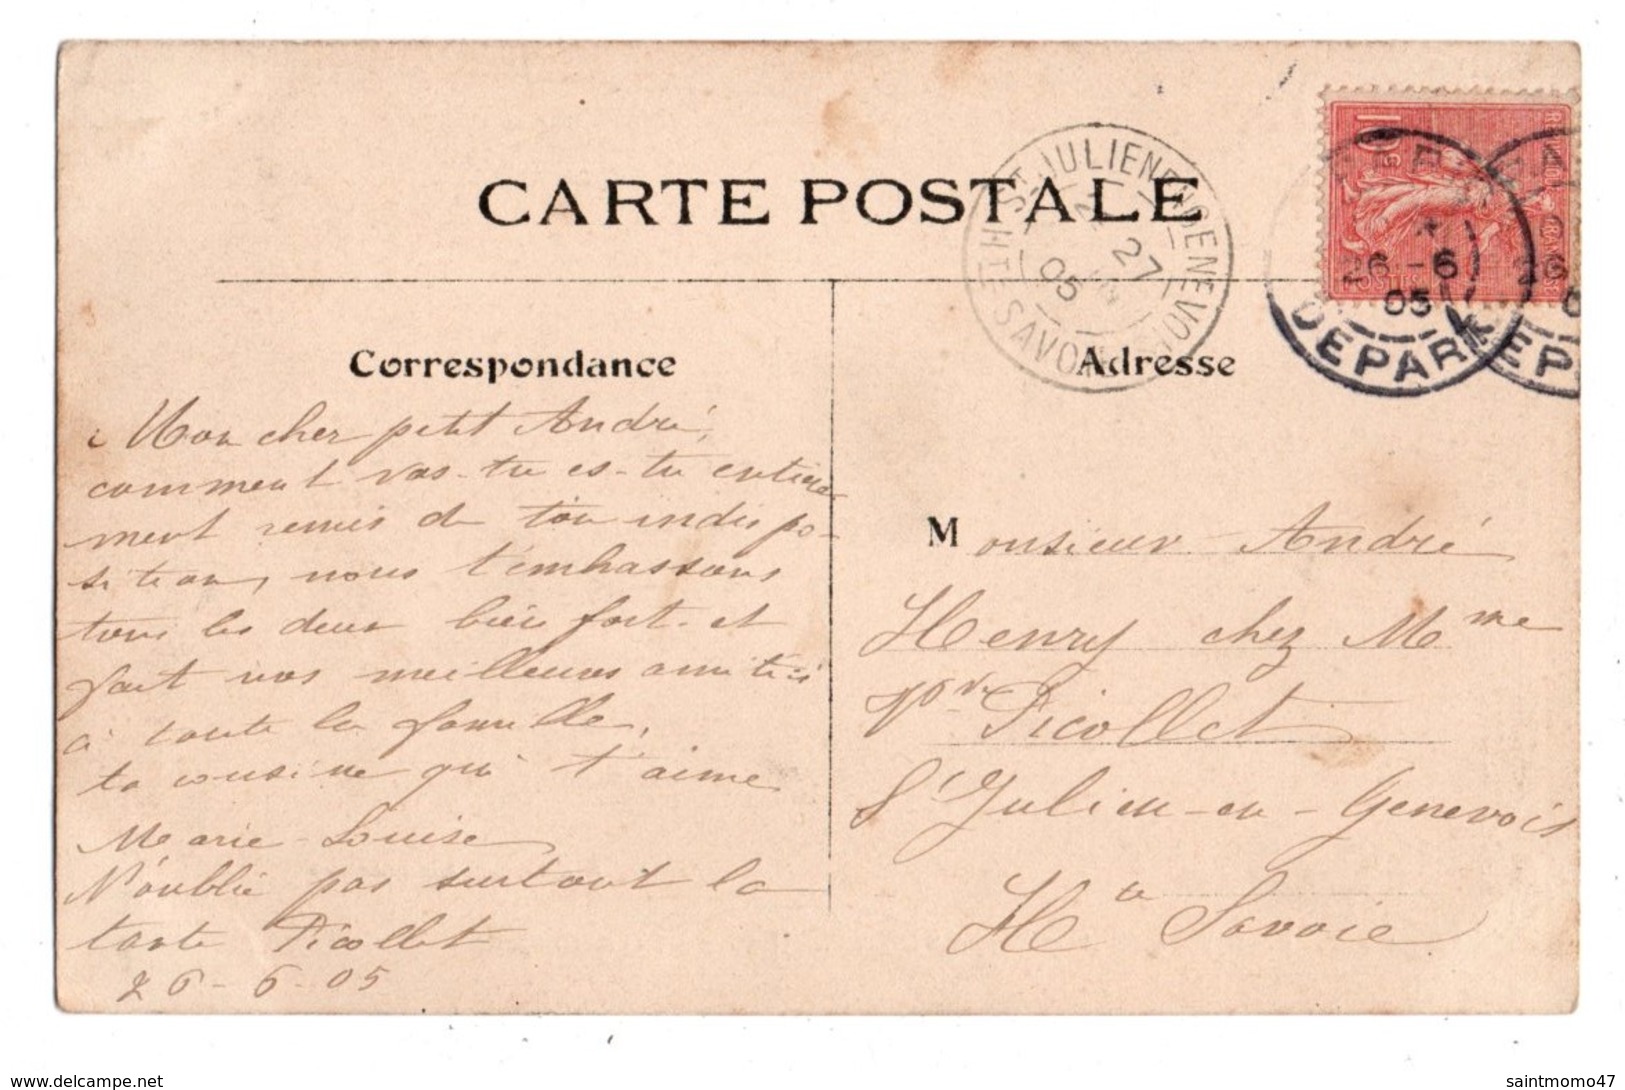 CARTE POSTALE
ST JULIEN EN GENEVOIS
HTE SAVOIE
27
05
REPUBLIQUE FRANCAISE
10
26 - 6
05
DEPART
26
Correspondance
Mon cher petit André,
comment vas-tu es-tu entière-
ment remis de ton indispo-
sition, nous t'embrassons
tous les deux bien fort et
fait nos meilleures amitiés
à toute la famille,
ta cousine qui t'aime
Marie-Louise
N'oublie pas surtout la
tante Picollet
26-6-05
Adresse
Monsieur André
Henry chez Mme
Vve Picollet
St Julien-en-Genevois
Hte Savoie
saintmomo47